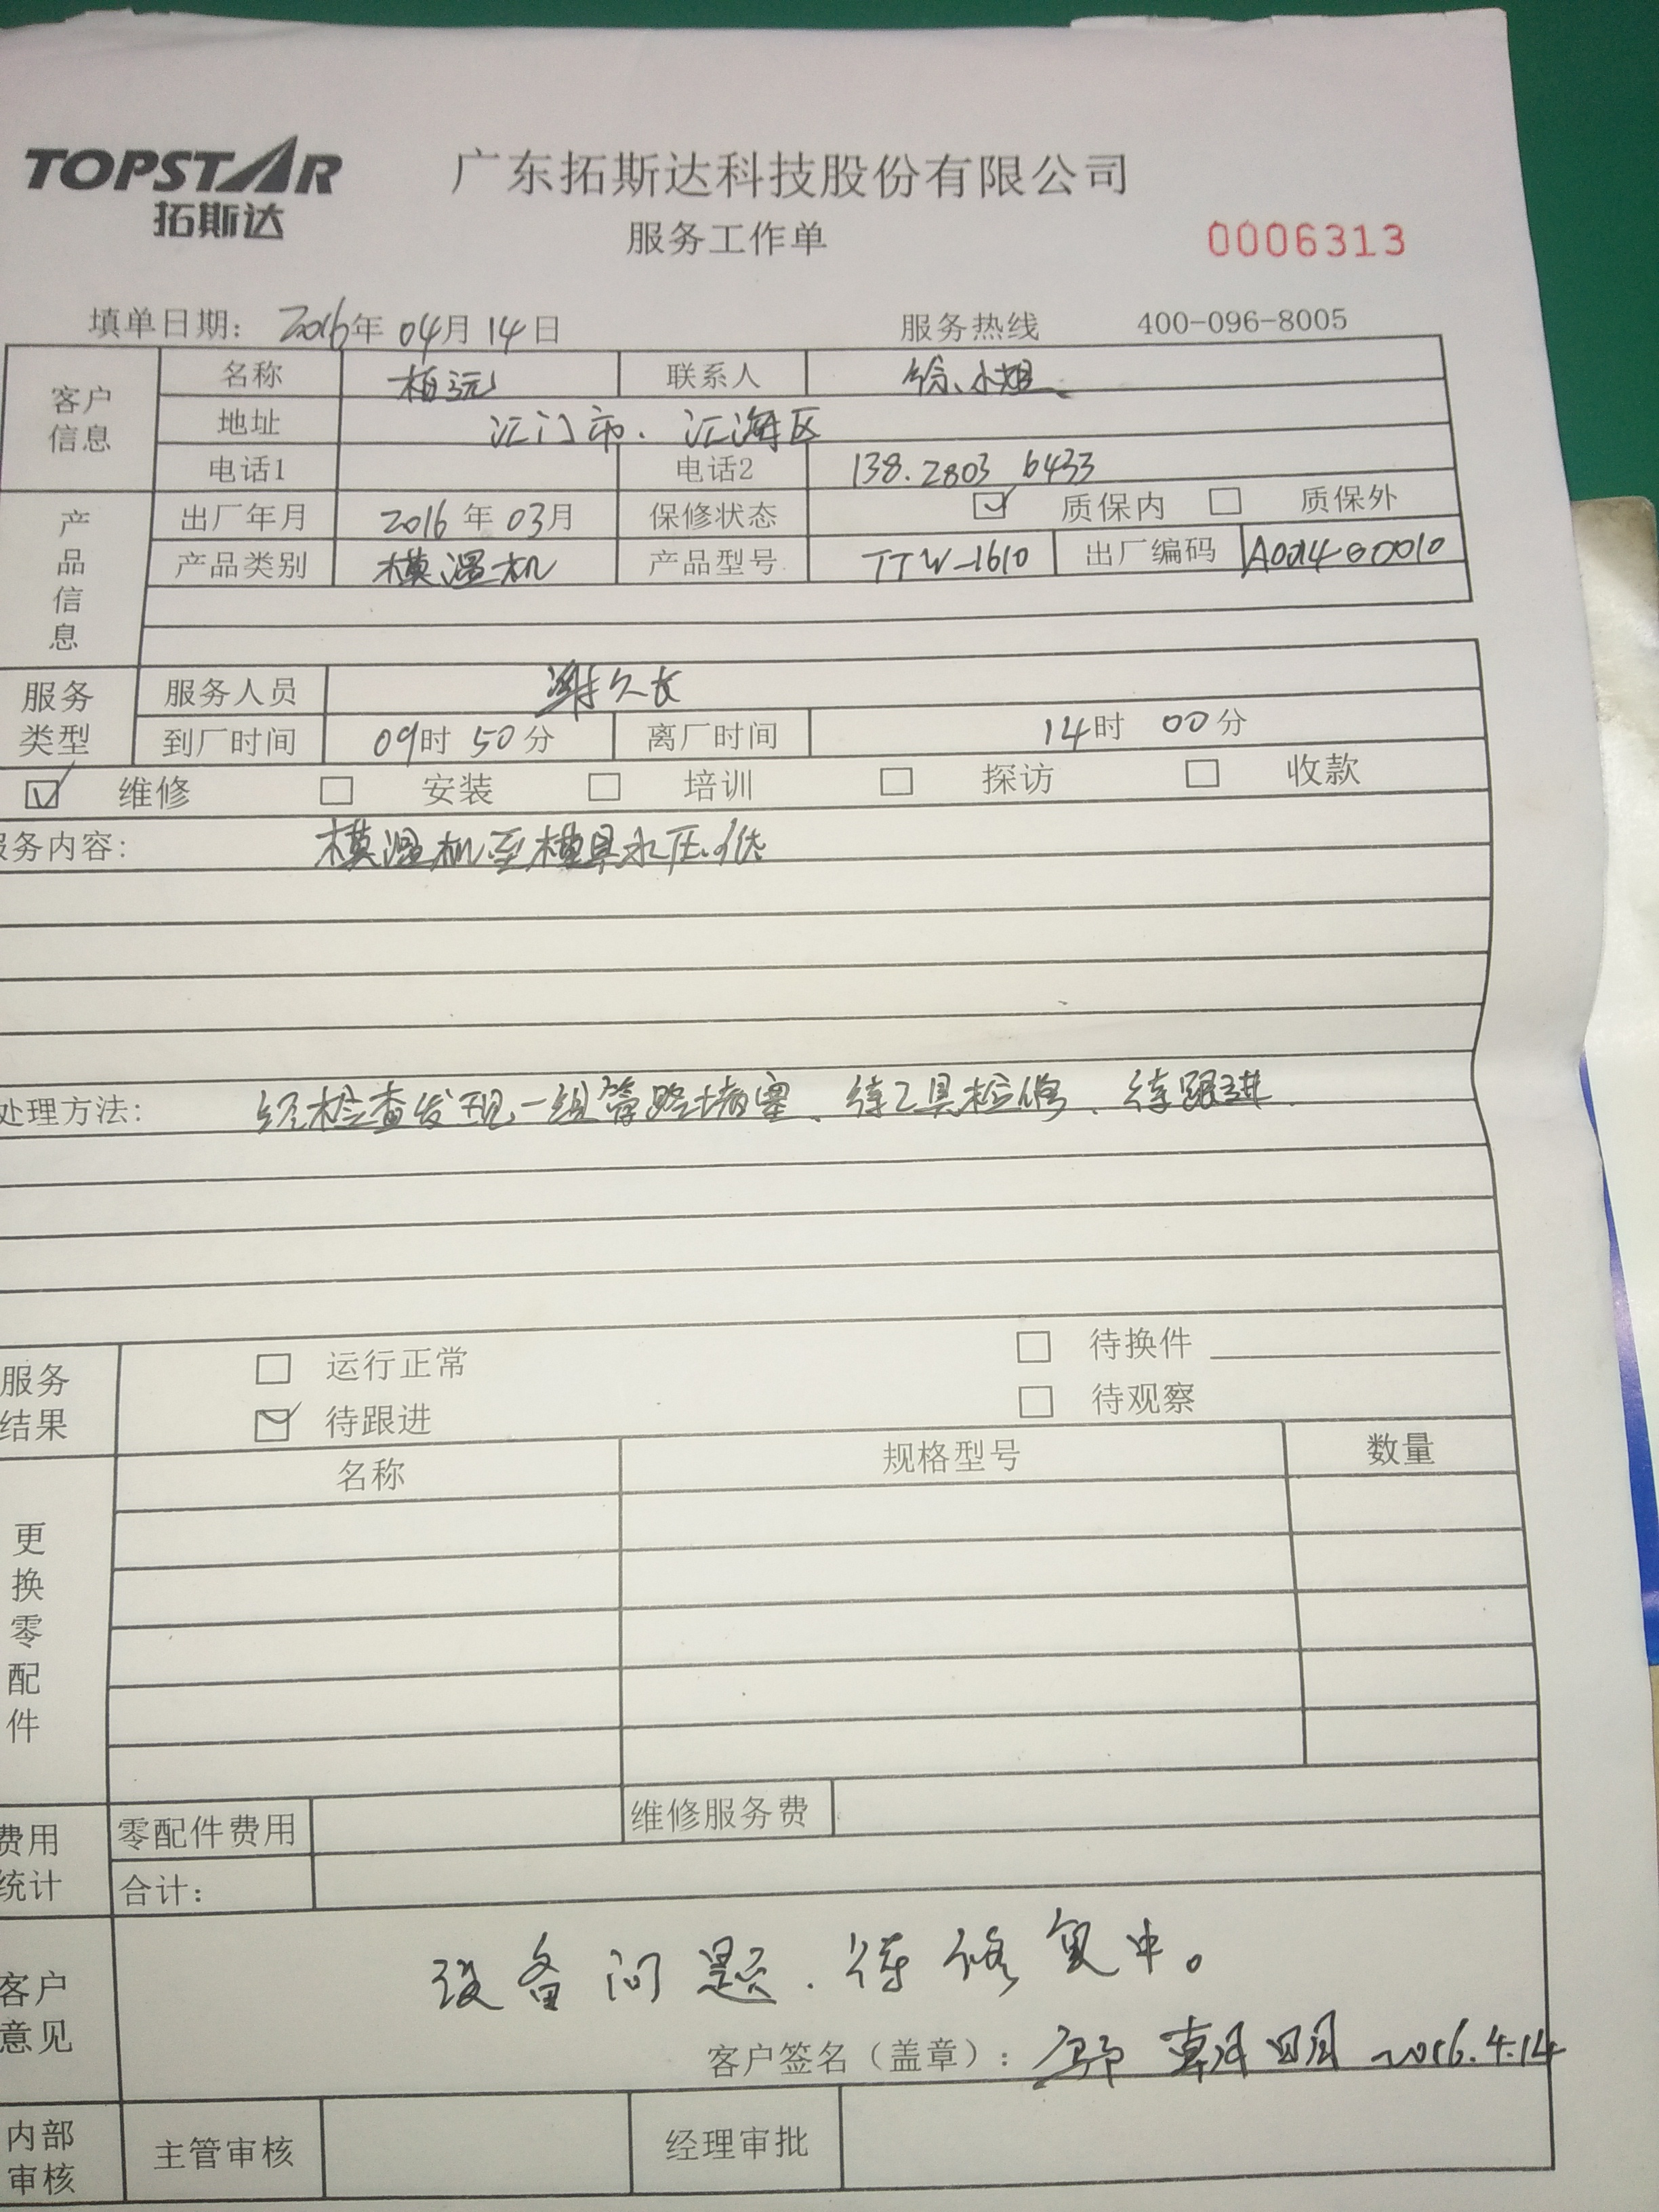 TOPSTAR
拓斯达
广东拓斯达科技股份有限公司
服务工作单
0006313
填单日期: 2016年 04月 14日 服务热线 400-096-8005
客户信息 名称 柏远 联系人 徐小姐
地址 江门市. 江海区
电话1 电话2 138.2803 6433
产品信息 出厂年月 2016年 03月 保修状态 ☑ 质保内 □ 质保外
产品类别 模温机 产品型号 TTW-1610 出厂编码
服务类型 服务人员 谢久长
到厂时间 09时 50分 离厂时间 14时 00分
☑ 维修 □ 安装 □ 培训 □ 探访 □ 收款
服务内容: 模温机至模具水压低
处理方法: 经检查发现一组管路堵塞、待工具检修、待跟进.
服务结果 □ 运行正常 □ 待换件
☑ 待跟进 □ 待观察
更换零配件 名称 规格型号 数量
费用统计 零配件费用 维修服务费
合计:
客户意见 设备问题. 待修复中。
客户签名(盖章): 朝明 2016.4.14
内部审核 主管审核 经理审批